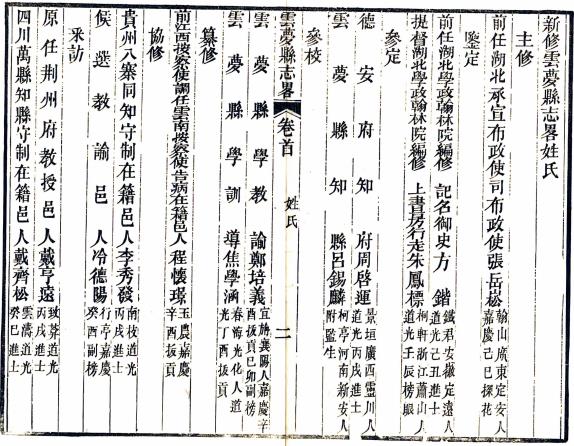 新修雲夢縣志畧姓氏
主修
前任湖北承宣布政使司布政使張岳崧 翰山廣東定安人 嘉慶己巳探花
鑒定
前任湖北學政翰林院編修 記名御史方 鍇 鐵君安徽定遠人 道光己丑進士
提督湖北學政翰林院編修 上書房行走朱鳳標 桐軒浙江蕭山人 道光壬辰榜眼
參定
德安府知府周啓運 景垣廣西靈川人 道光丙戌進士
雲夢縣知縣呂錫麟 柯亭河南新安人 附監生
參校
雲夢縣志畧 卷首 姓氏 二
雲夢縣學教諭鄭培義 宜旃襄陽人嘉慶辛 酉拔貢己卯副榜
雲夢縣學訓導焦學涵 春海光化人道 光丁酉拔貢
纂修
前江西按察使調任雲南按察使告病在籍邑人程懷璟 玉農嘉慶 辛酉拔貢
協修
貴州八寨同知守制在籍邑人李秀發 南枝道光 丙戌進士
候選教諭邑人冷德陽 行亭嘉慶 癸酉副榜
采訪
原任荆州府教授邑人戴亨遠 道光 丙戌進士
四川萬縣知縣守制在籍邑人戴齊松 雲濤道光 癸巳進士